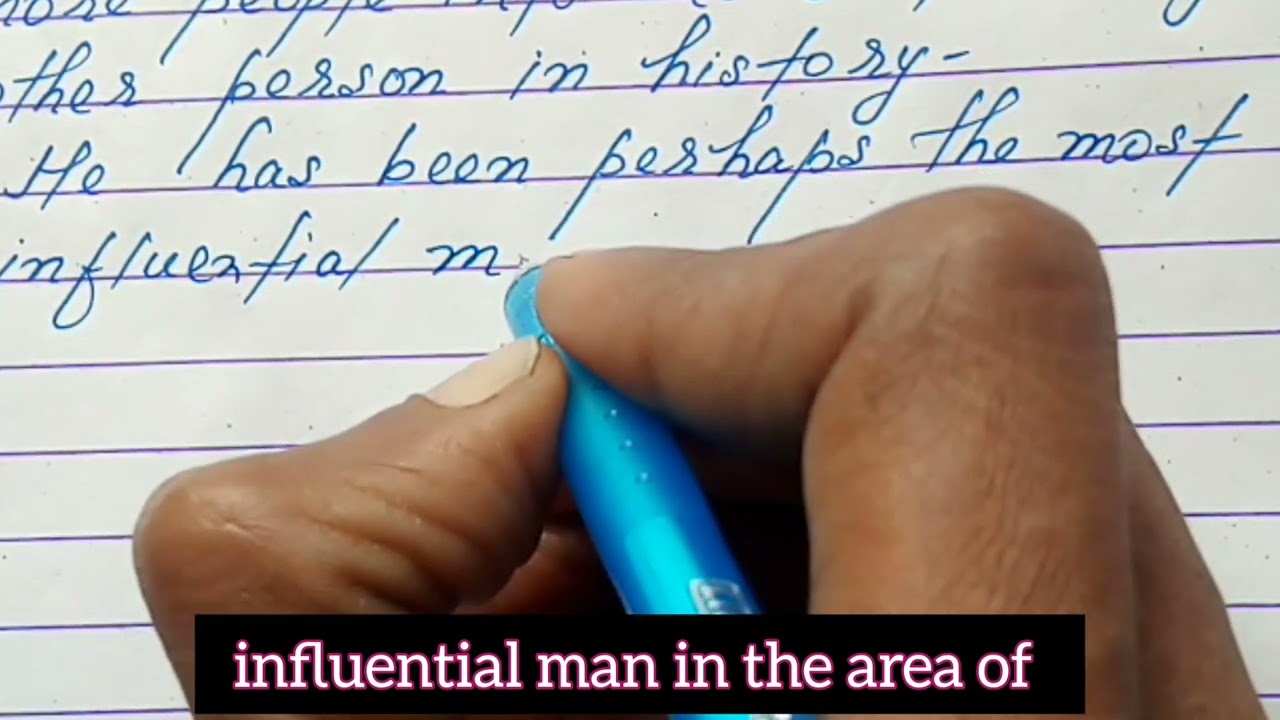 people
other person in history-
He has been perhaps the most
influential m
influential man in the area of